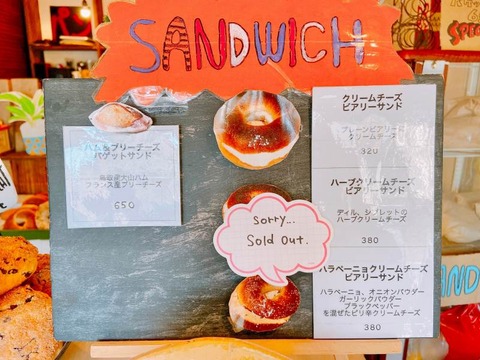 SANDWICH
ハム&ブリーチーズ
バゲットサンド
鳥取産大山ハム
フランス産ブリーチーズ
650
クリームチーズ
ビアリーサンド
プレーンビアリーに
クリームチーズ
320
ハーブクリームチーズ
ビアリーサンド
ディル、シブレットの
ハーブクリームチーズ
380
sorry...
Sold Out.
ハラペーニョクリームチーズ
ビアリーサンド
ハラペーニョ、オニオンパウダー
ガーリックパウダー
ブラックペッパー
を混ぜたピリ辛クリームチーズ
380